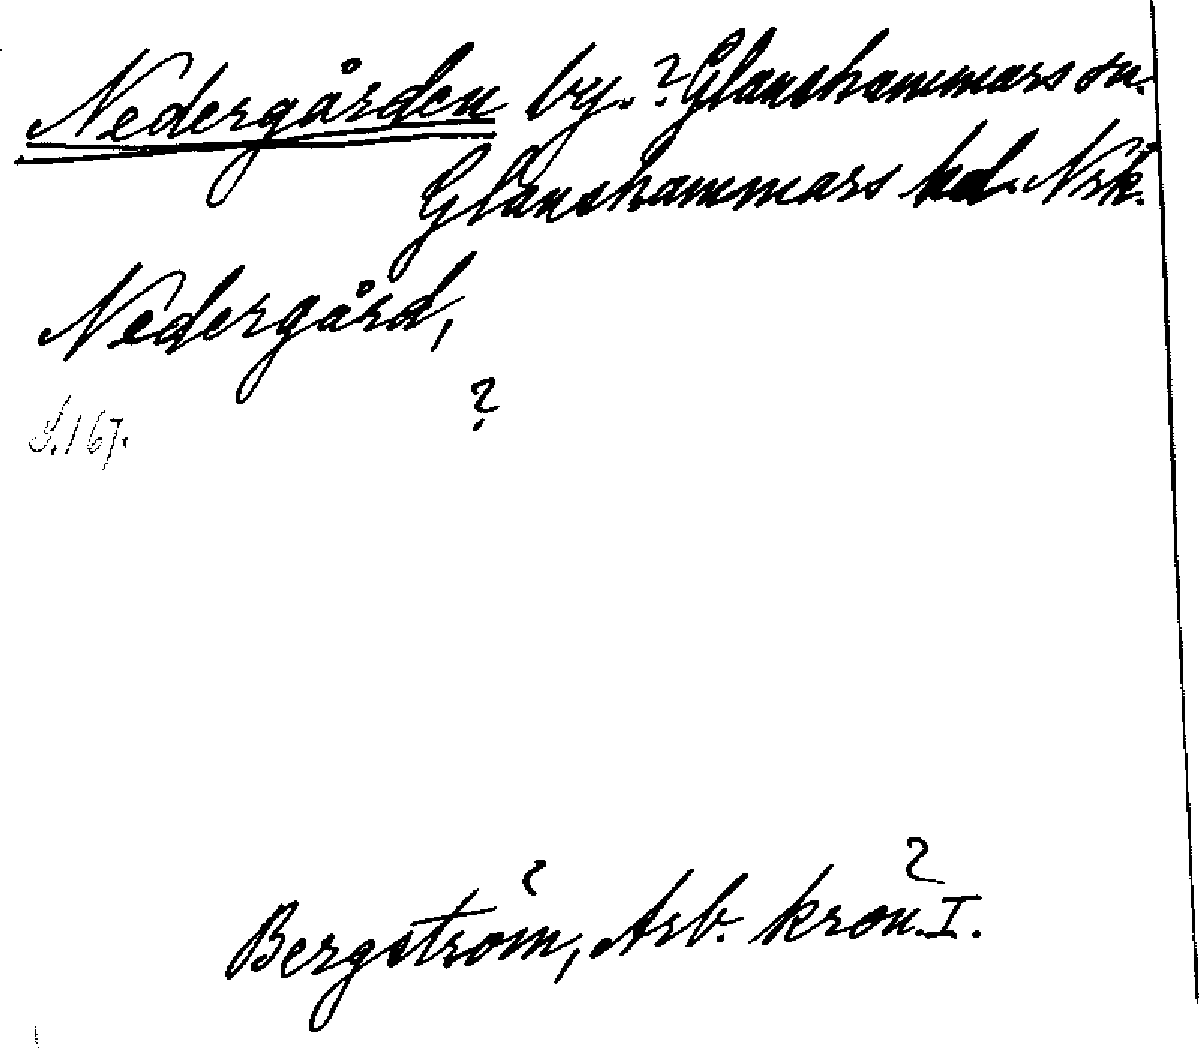 Nedergården by. ? Glanshammars sn.
Glanshammars hd. Nrk.
Nedergård,
?
S. 167.
2
Bergström, Arb. krön. I.